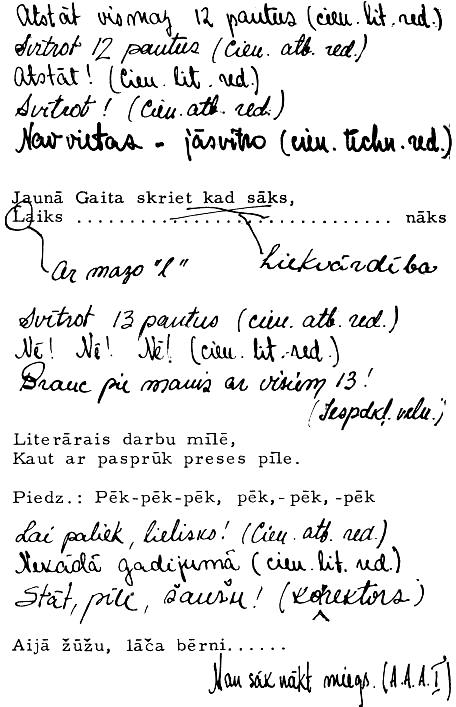 Atstāt vismaz 12 pantus (cien. lit. red.)
Svītrot 12 pantus (cien. atb. red.)
Atstāt! (cien. lit. red.)
Svītrot! (cien. atb. red.)
Nav vietas - jāsvītro (cien. techn. red.)
Jaunā Gaita skriet kad sāks,
Laiks ................................ nāks
Ar mazo "l"
Liekvārdība
Svītrot 13 pantus (cien. atb. red.)
Nē! Nē! Nē! (cien. lit. red.)
Brauc pie manis ar visiem 13!
(Iespdkļ. veln.")
Literārais darbu mīlē,
Kaut ar pasprūk preses pīle.
Piedz.: Pēk-pēk-pēk, pēk,-pēk, -pēk
Lai paliek, lielisks! (Cien. atb. red.)
Nekādā gadijumā (cien. lit. red.)
Stāt, pīle, šaušu! (korektors)
Aijā žūžu, lāča bērni......
Man sāk nākt miegs. (A.A.A.I)